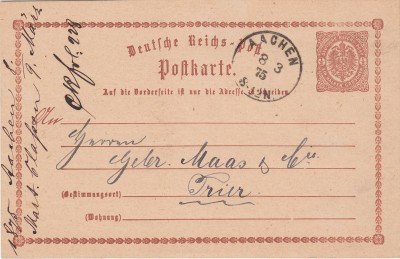 Deutsche Reichs-Post
Postkarte.
Auf die Vorderseite ist nur die Adresse zu schreiben
AACHEN
8 3
75
8-9N.
An
Herren
Gebr. Maas & Cie
Trier
(Bestimmungsort)
(Wohnung)
1875 Aachen 8.
Mart. Classen 9. März